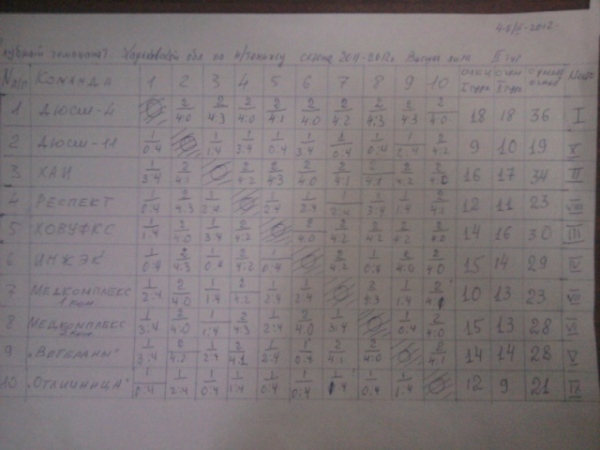 4-5/II-2012г.
Клубный чемпионат Харьковской обл по н/теннису сезона 2011-2012г. Высшая лига II тур
N п/п КОМАНДА 1 2 3 4 5 6 7 8 9 10 очки очки место
1 ДЮСШ-4 2 4:0 2 4:3 2 4:0 2 4:1 2 4:0 2 4:2 2 4:3 2 4:3 2 4:0 18 18 36 I
2 ДЮСШ-11 1 0:4 1 1:4 1 3:4 1 0:4 1 3:4 1 0:4 1 0:4 1 2:4 2 4:2 9 10 19 X
3 ХАИ 1 3:4 2 4:1 2 4:2 2 4:3 2 4:0 2 4:1 2 4:1 2 4:2 2 4:0 16 17 34 II
4 РЕСПЕКТ 1 0:4 2 4:3 1 2:4 1 2:4 1 2:4 1 2:4 1 3:4 1 1:4 2 4:1 12 11 23 VIII
5 ХОВУФКС 1 1:4 2 4:0 1 3:4 2 4:2 2 4:0 2 4:2 2 4:2 2 4:2 2 4:0 14 16 30 III
6 ИНЖЭК 1 0:4 2 4:3 1 0:4 2 4:2 1 0:4 2 4:2 1 0:4 2 4:0 2 4:0 15 14 29 IV
7 МЕДКОМПЛЕКС 1 2:4 2 4:0 1 1:4 2 4:2 1 2:4 1 2:4 2 4:3 1 1:4 2 4:1 10 13 23 VII
8 МЕДКОМПЛЕКС 1 3:4 2 4:0 1 1:4 2 4:3 1 2:4 2 4:0 1 3:4 1 0:4 2 4:0 15 13 28 VI
9 "ВЕТЕРАНЫ" 1 3:4 2 4:2 1 2:4 2 4:1 1 2:4 1 0:4 2 4:1 2 4:0 2 4:1 14 14 28 V
10 "ОТЛИЧНИЦА" 1 0:4 1 2:4 1 0:4 1 1:4 1 0:4 1 0:4 1 1:4 1 0:4 1 1:4 12 9 21 IX